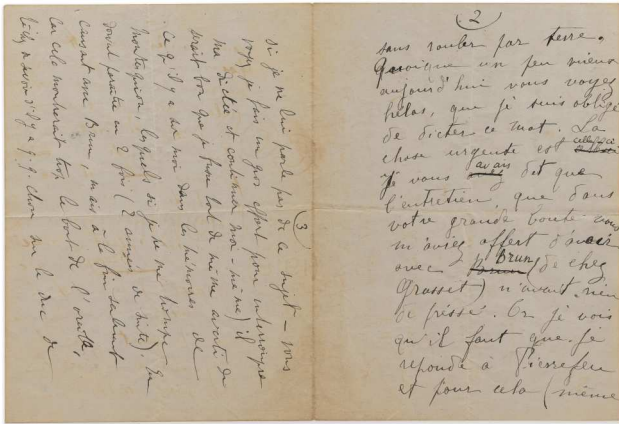 2
sans rouler par terre.
Quoique un peu mieux
aujourd'hui vous voyez
hélas, que je suis obligé
de dicter ce mot. La
chose urgente est celle-ci
Je vous avais dit que
l'entretien, que dans
votre grande bonté vous
m'aviez offert d'avoir
avec Brun (de chez
Grasset) n'avait rien
de pressé. Or je vois
qu'il faut que je
réponde à Pierrefeu
et pour cela (même
3
si je ne lui parle pas de ce sujet - vous
voyez je fais un gros effort pour interrompre
ma dictée et continuer moi-même) il
serait bon que je fusse tout de même averti de
ce qu'il y a sur moi dans les mémoires de
Montesquiou, lesquels si je ne me trompe
doivent paraître en 2 fois (2 années de suite). En
causant avec Brun, mais à la fin seulement
car cela montrerait trop le bout de l'oreille,
de savoir s'il y a q.q. chose sur le duc de